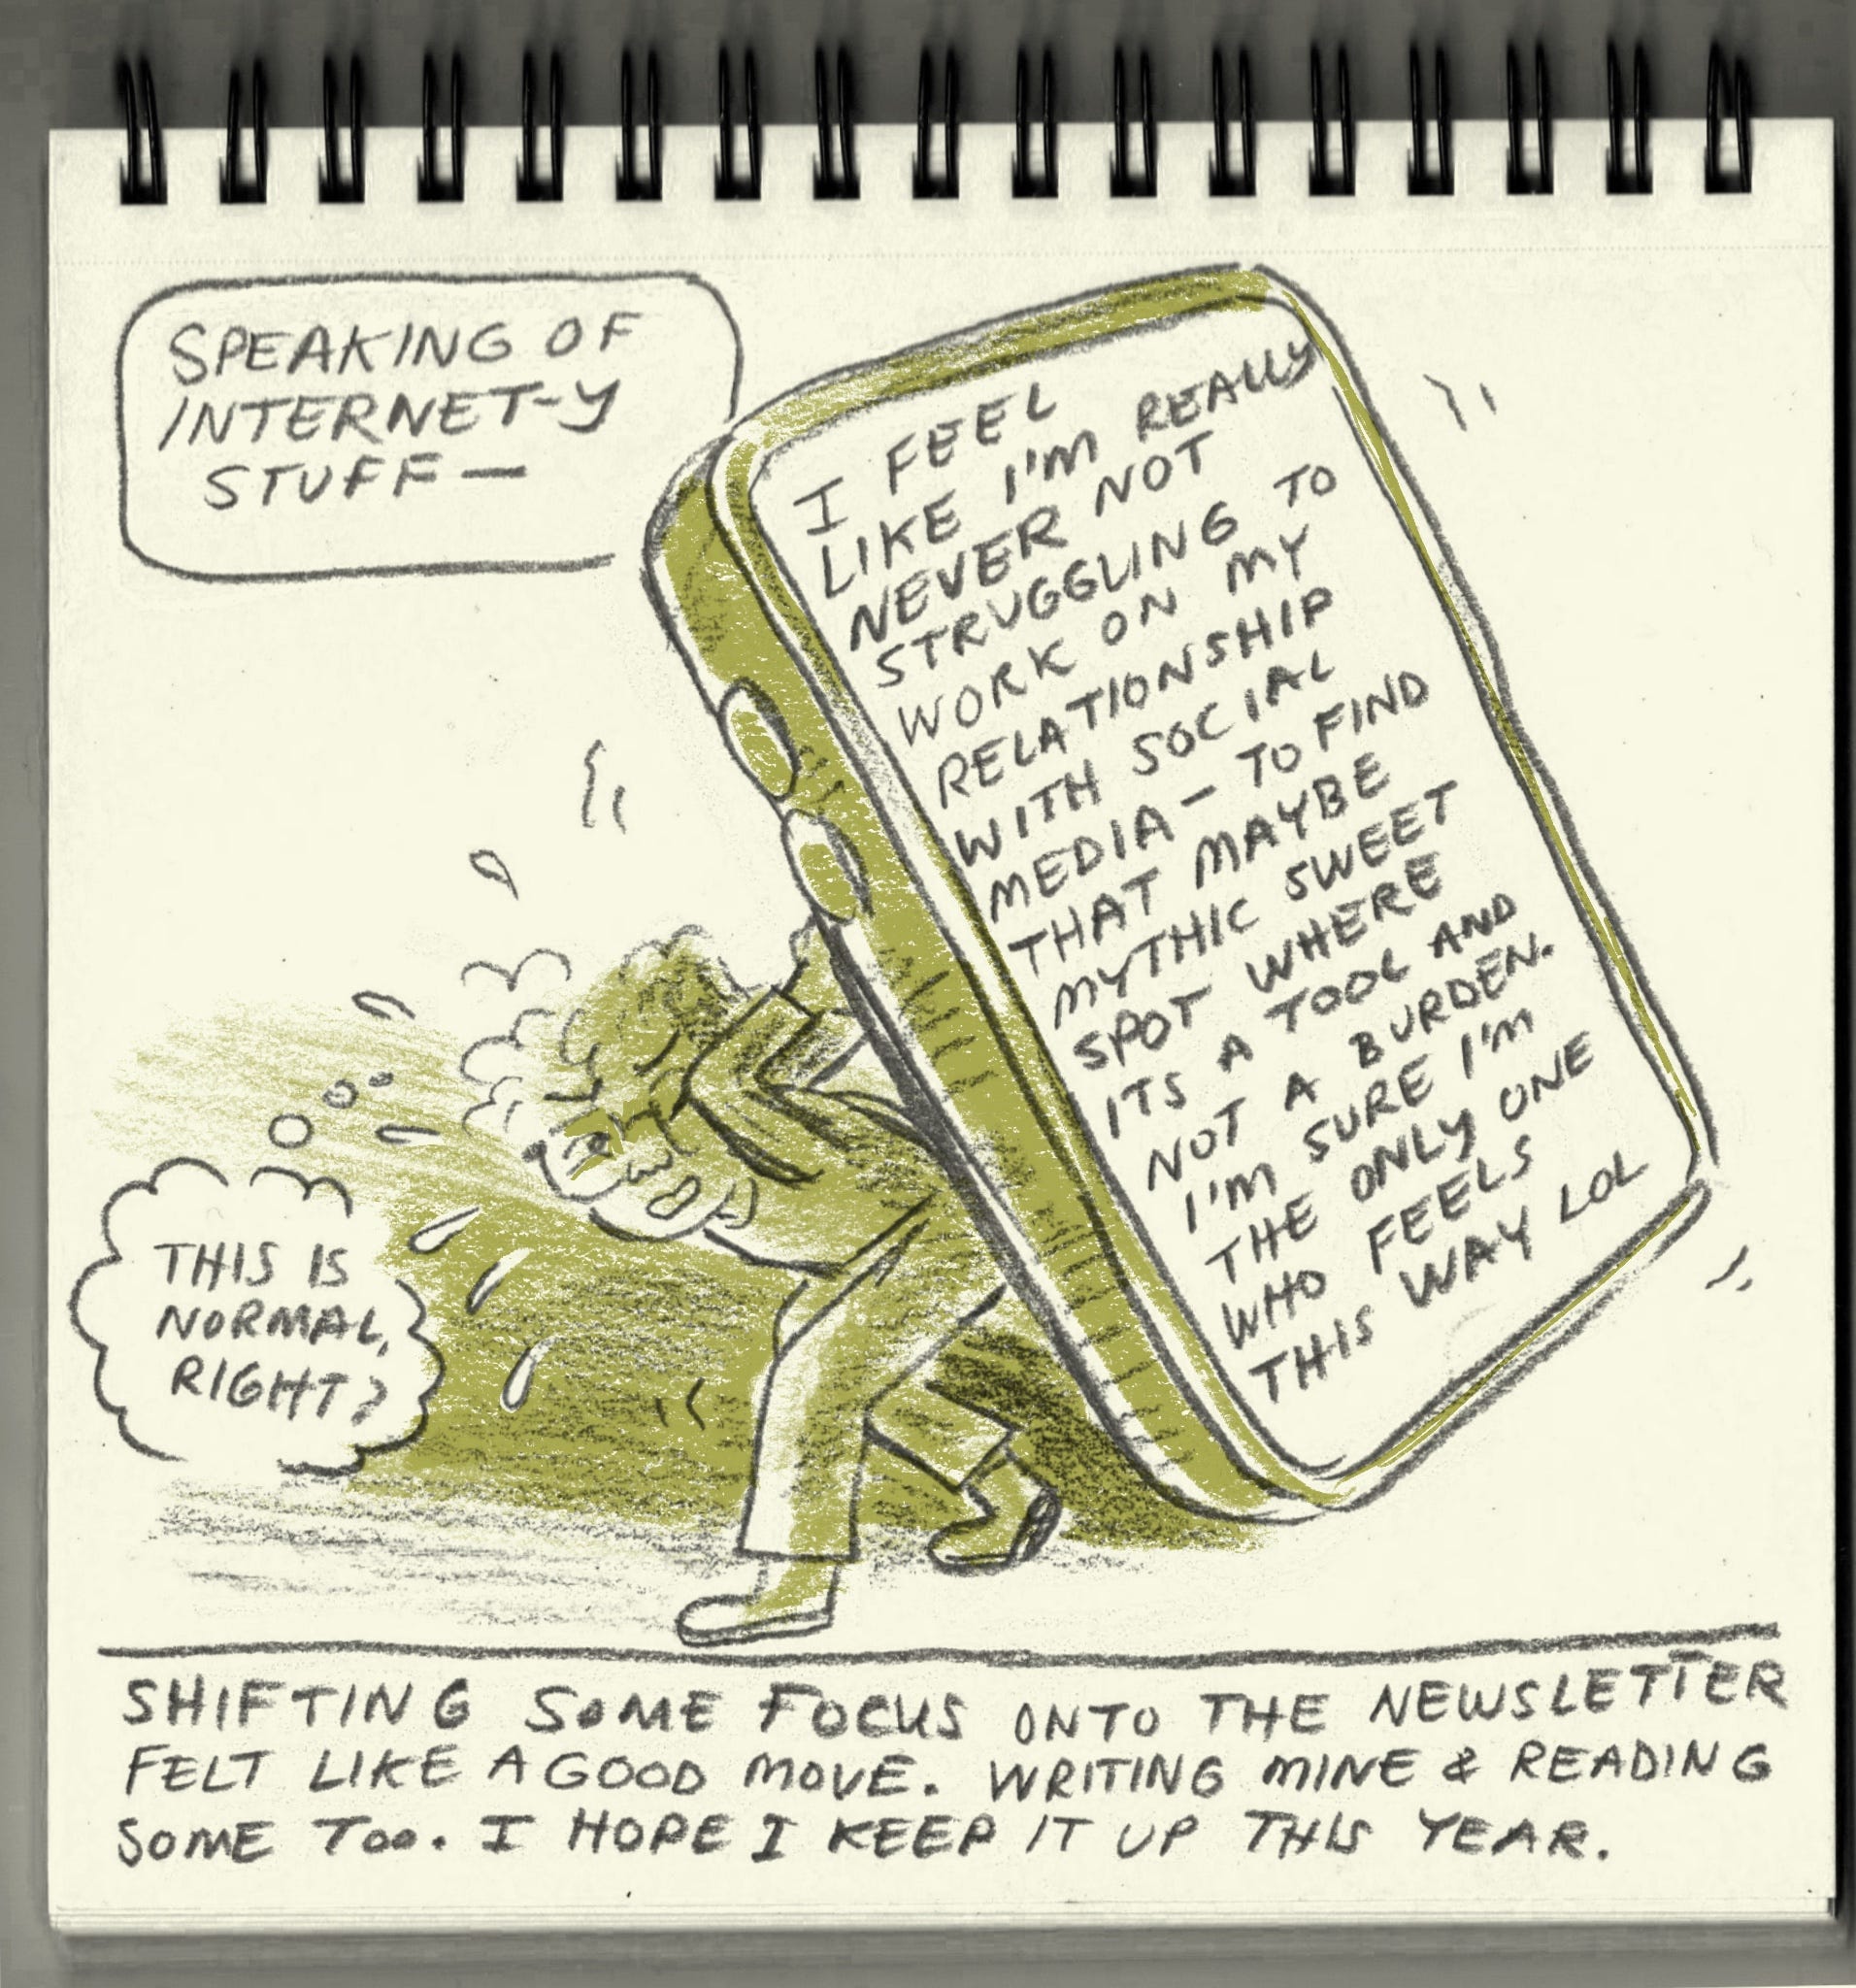 SPEAKING OF
INTERNET-Y
STUFF —
I FEEL
LIKE I'M REALLY
NEVER NOT
STRUGGLING TO
WORK ON MY
RELATIONSHIP
WITH SOCIAL
MEDIA — TO FIND
THAT MAYBE
MYTHIC SWEET
SPOT WHERE
ITS A TOOL AND
NOT A BURDEN.
I'M SURE I'M
THE ONLY ONE
WHO FEELS
THIS WAY LOL
THIS IS
NORMAL,
RIGHT?
SHIFTING SOME FOCUS ONTO THE NEWSLETTER
FELT LIKE A GOOD MOVE. WRITING MINE & READING
SOME TOO. I HOPE I KEEP IT UP THIS YEAR.